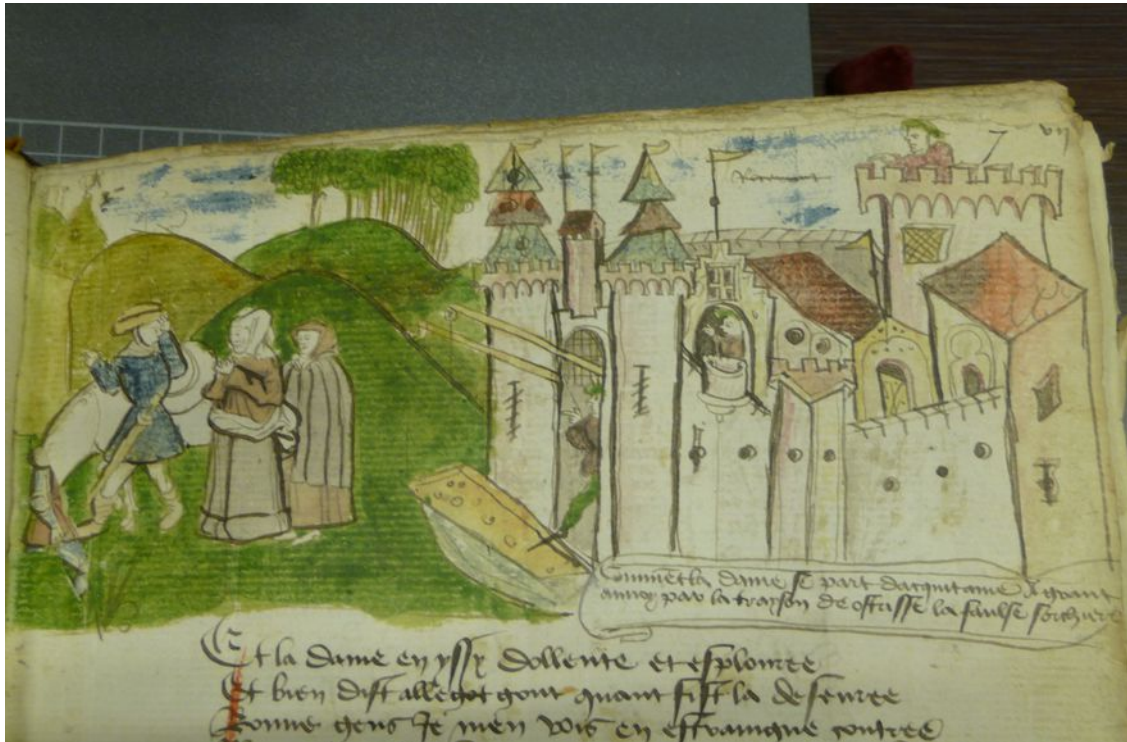 vij
Comment la dame se part dacquitaine a grant
annoy par la trayson de ostrisse la faulse sorchiere
Et la dame en yssy dollente et esplouree
Et bien dist quant fist la deseuree
Bonne gens Je men vois en estraingne contree